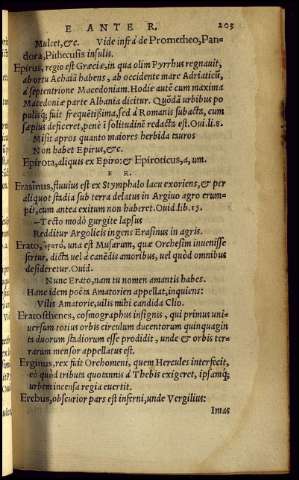 E ANTE R. 203
Mulcet, &c. Vide infrà de Prometheo, Pan-
dora, Pithecusis insulis.
Epirus, regio est Græciæ, in qua olim Pyrrhus regnauit,
ab ortu Achaiã habens, ab occidente mare Adriaticũ,
à septentrione Macedoniam. Hodie autẽ cum maxima
Macedoniæ parte Albania dicitur. Quõdã urbibus po
pulisq́; fuit frequẽtißima, sed à Romanis subacta, cum
sæpius deficeret, penè ĩ solitudinẽ redacta est. Oui. li. 8.
Misit apros quanto maiores herbida tauros
Non habet Epirus, &c.
Epirota, aliquis ex Epiro: & Epiroticus, a, um.
E R.
Erasinus, fluuius est ex Stymphalo lacu exoriens, & per
aliquot stadia sub terra delatus in Argiuo agro erum-
pit, cum antea exitum non haberet. Ouid. lib. 15.
—Tecto modò gurgite lapsus
Redditur Argolicis ingens Erasinus in agris.
Erato, ἐρατώ, una est Musarum, quæ Orchesim inuenisse
fertur, dicta uel à canẽdis amoribus, uel quòd omnibus
desideretur. Ouid.
Nunc Erato, nam tu nomen amantis habes.
Hanc idem poëta Amatoriem appellat, inquiens:
Vilis Amatorie, uilis mihi candida Clio.
Eratosthenes, cosmographus insignis, qui primus uni-
uersum totius orbis circulum ducentorum quinquagin
ta duorum stadiorum esse prodidit, unde & orbis ter-
rarum mensor appellatus est.
Erginus, rex fuit Orchomeni, quem Hercules interfecit,
eò quòd tributa quotannis à Thebis exigeret, ipsamq́;
urbem incensa regia euertit.
Erebus, obscurior pars est inferni, unde Vergilius:
Imas